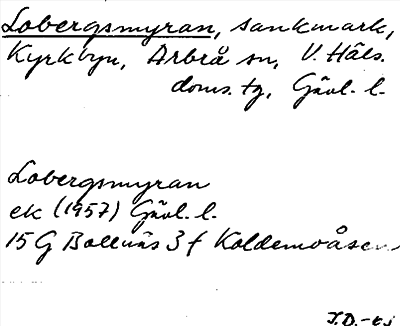 Lobergsmyran, sankmark,
Kyrkbyn, Arbrå sn, V. Häls.
doms. tg, Gävl. l.
Lobergsmyran
ek (1957) Gävl. l.
15 G Bollnäs 3 f Koldemoåsen
I.D.-ej